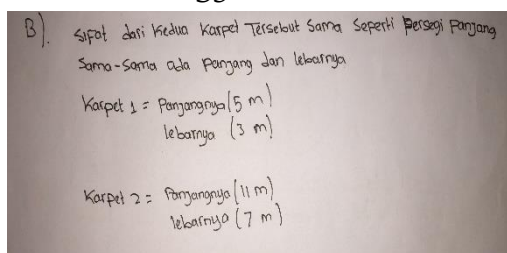 B). Sifat dari Kedua Karpet Tersebut Sama Seperti Persegi Panjang
Sama-Sama ada Panjang dan lebarnya
Karpet 1 = Panjangnya (5 m)
lebarnya (3 m)
Karpet 2 = Panjangnya (11 m)
lebarnya (7 m)